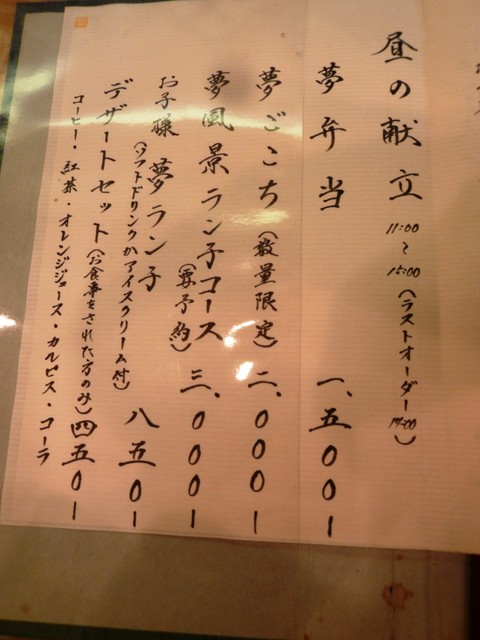 昼の献立 11:00〜15:00(ラストオーダー14:00)
夢弁当 一、五〇〇ー
夢ごこち(数量限定) 二、〇〇〇ー
夢風景ラン子コース(要予約) 三、〇〇〇ー
お子様夢ラン子(ソフトドリンクかアイスクリーム付) 八五〇ー
デザートセット(お食事をされた方のみ) 四五〇ー
コーヒー・紅茶・オレンジジュース・カルピス・コーラ